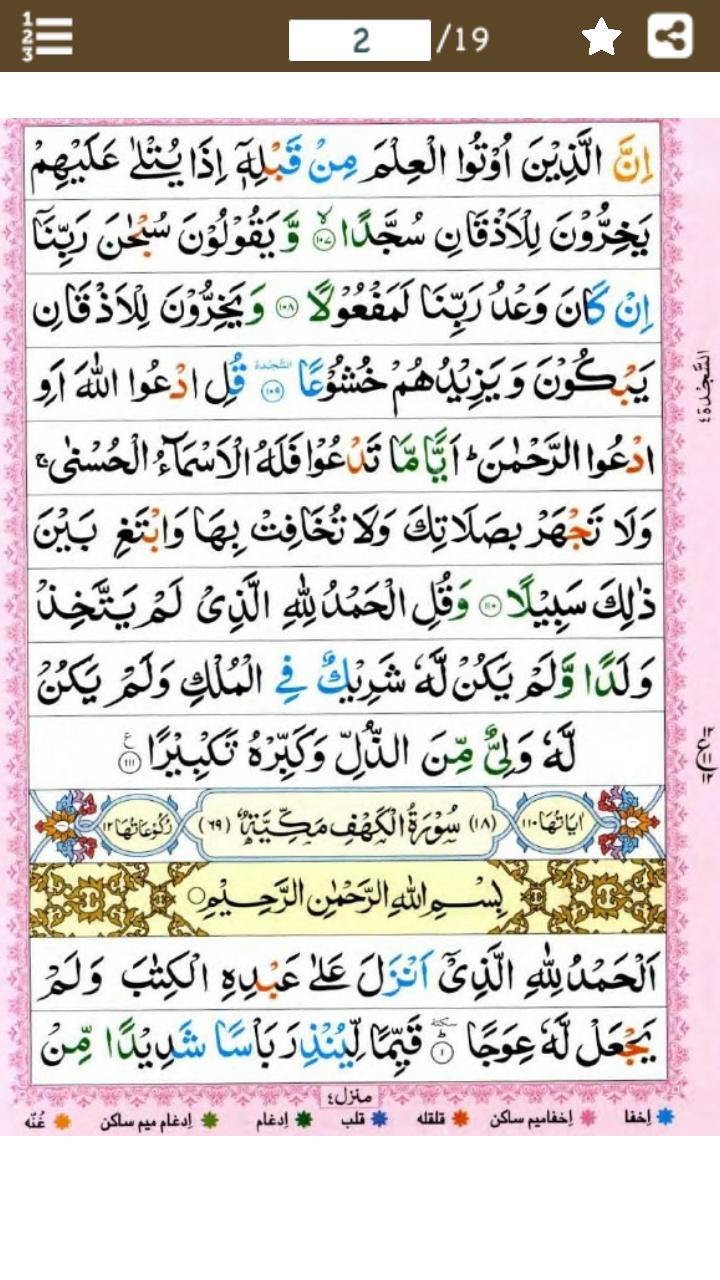 2 /19
اِنَّ الَّذِيْنَ اُوْتُوا الْعِلْمَ مِنْ قَبْلِهٖۤ اِذَا يُتْلٰى عَلَيْهِمْ
يَخِرُّوْنَ لِلْاَذْقَانِ سُجَّدًا ۙ‏﴿۱۰۷﴾ وَّ يَقُوْلُوْنَ سُبْحٰنَ رَبِّنَاۤ
اِنْ كَانَ وَعْدُ رَبِّنَا لَمَفْعُوْلًا ﴿۱۰۸﴾ وَ يَخِرُّوْنَ لِلْاَذْقَانِ
يَبْكُوْنَ وَ يَزِيْدُهُمْ خُشُوْعًا ۩ السَّجْدَة ﴿۱۰۹﴾ قُلِ ادْعُوا اللّٰهَ اَوِ
ادْعُوا الرَّحْمٰنَ ؕ اَيًّا مَّا تَدْعُوْا فَلَهُ الْاَسْمَآءُ الْحُسْنٰى ۚ
وَلَا تَجْهَرْ بِصَلَاتِكَ وَلَا تُخَافِتْ بِهَا وَابْتَغِ بَيْنَ
ذٰلِكَ سَبِيْلًا ﴿۱۱۰﴾ وَقُلِ الْحَمْدُ لِلّٰهِ الَّذِىْ لَمْ يَتَّخِذْ
وَلَدًا وَّلَمْ يَكُنْ لَّهٗ شَرِيْكٌ فِي الْمُلْكِ وَلَمْ يَكُنْ
لَّهٗ وَلِىٌّ مِّنَ الذُّلِّ وَكَبِّرْهُ تَكْبِيْرًا ﴿۱۱۱﴾ ع
اٰيَاتُهَا ۱۱۰ (۱۸) سُوْرَةُ الْكَهْفِ مَكِّيَّةٌ (۶۹) رُكُوْعَاتُهَا ۱۲
بِسْمِ اللّٰهِ الرَّحْمٰنِ الرَّحِيْمِ
اَلْحَمْدُ لِلّٰهِ الَّذِىْۤ اَنْزَلَ عَلٰى عَبْدِهِ الْكِتٰبَ وَلَمْ
يَجْعَلْ لَّهٗ عِوَجًا ؕ سكتة ﴿۱﴾ قَيِّمًا لِّيُنْذِرَ بَاْسًا شَدِيْدًا مِّنْ
السَّجْدَة ٤
منزل ٤
اِخفا اِخفامیم ساکن قلقله قلب اِدغام اِدغام میم ساکن غُنّه